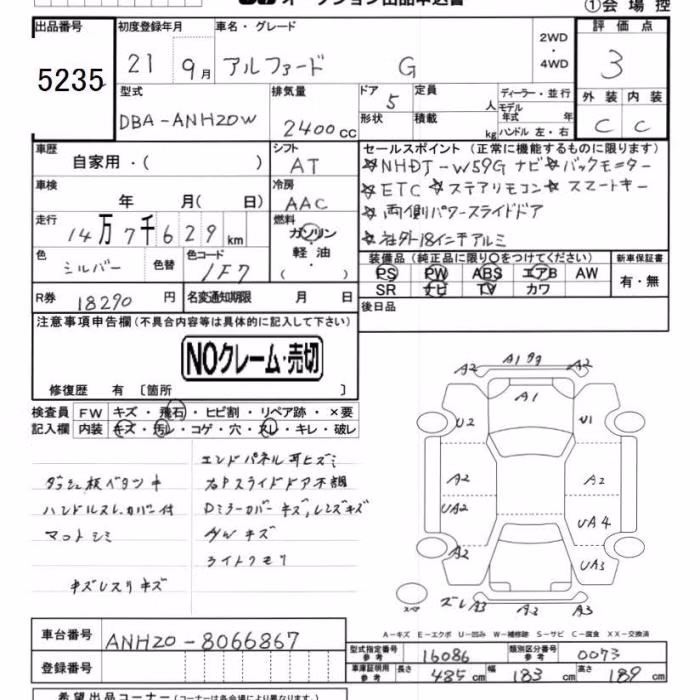 オークション出品申込書
①会場控
出品番号
5235
初度登録年月
21 9月
車名・グレード
アルファード G
2WD
・
4WD
評価点
3
外装 内装
C C
型式
DBA-ANH20W
排気量
2400cc
ドア 5
形状
定員 人
積載 kg
ディーラー・並行
モデル年式 年
ハンドル 左・右
車歴
自家用・( )
シフト
AT
セールスポイント(正常に機能するものに限ります)
☆NHDT-W59G ナビ☆バックモニター
☆ETC ☆ステアリモコン ☆スマートキー
☆両側パワースライドドア
☆社外18インチアルミ
車検
年 月( 日)
冷房
AAC
走行
14万7千629km
燃料
ガソリン
軽油・
( )
色
シルバー
色替
色コード
1F7
装備品(純正品に限り○をつけてください)
PS PW ABS エアB AW
SR ナビ TV カワ
新車保証書
有・無
R券 18290円
名変通知期限 月 日
後日品
注意事項申告欄(不具合内容等は具体的に記入して下さい)
NOクレーム・売切
修復歴 有〔箇所 〕
検査員 FW キズ・飛石・ヒビ割・リペア跡・×要
記入欄 内装 キズ・汚レ・コゲ・穴・スレ・キレ・破レ
エンドパネル耳ヒズミ
ダッシュ板ベタツキ
右Pスライドドア不調
ハンドルスレ.カバー付
Dミラーカバーキズ,レンズキズ
マットシミ
A/Wキズ
ライトクモリ
キズレスリキズ
A2 A1 A2
A1
U2 U1
A2 A2
UA2 UA4
A2 UA3
スペア ズレA3 A2 A3
A-キズ E-エクボ U-凹み W-補修跡 S-サビ C-腐食 XX-交換済
車台番号 ANH20-8066867
登録番号
型式指定番号 参考 16086
類別区分番号 参考 0073
車庫証明用 参考 長さ 485cm 幅 183cm 高さ 189cm
希望出品コーナー(コーナーは各会場により